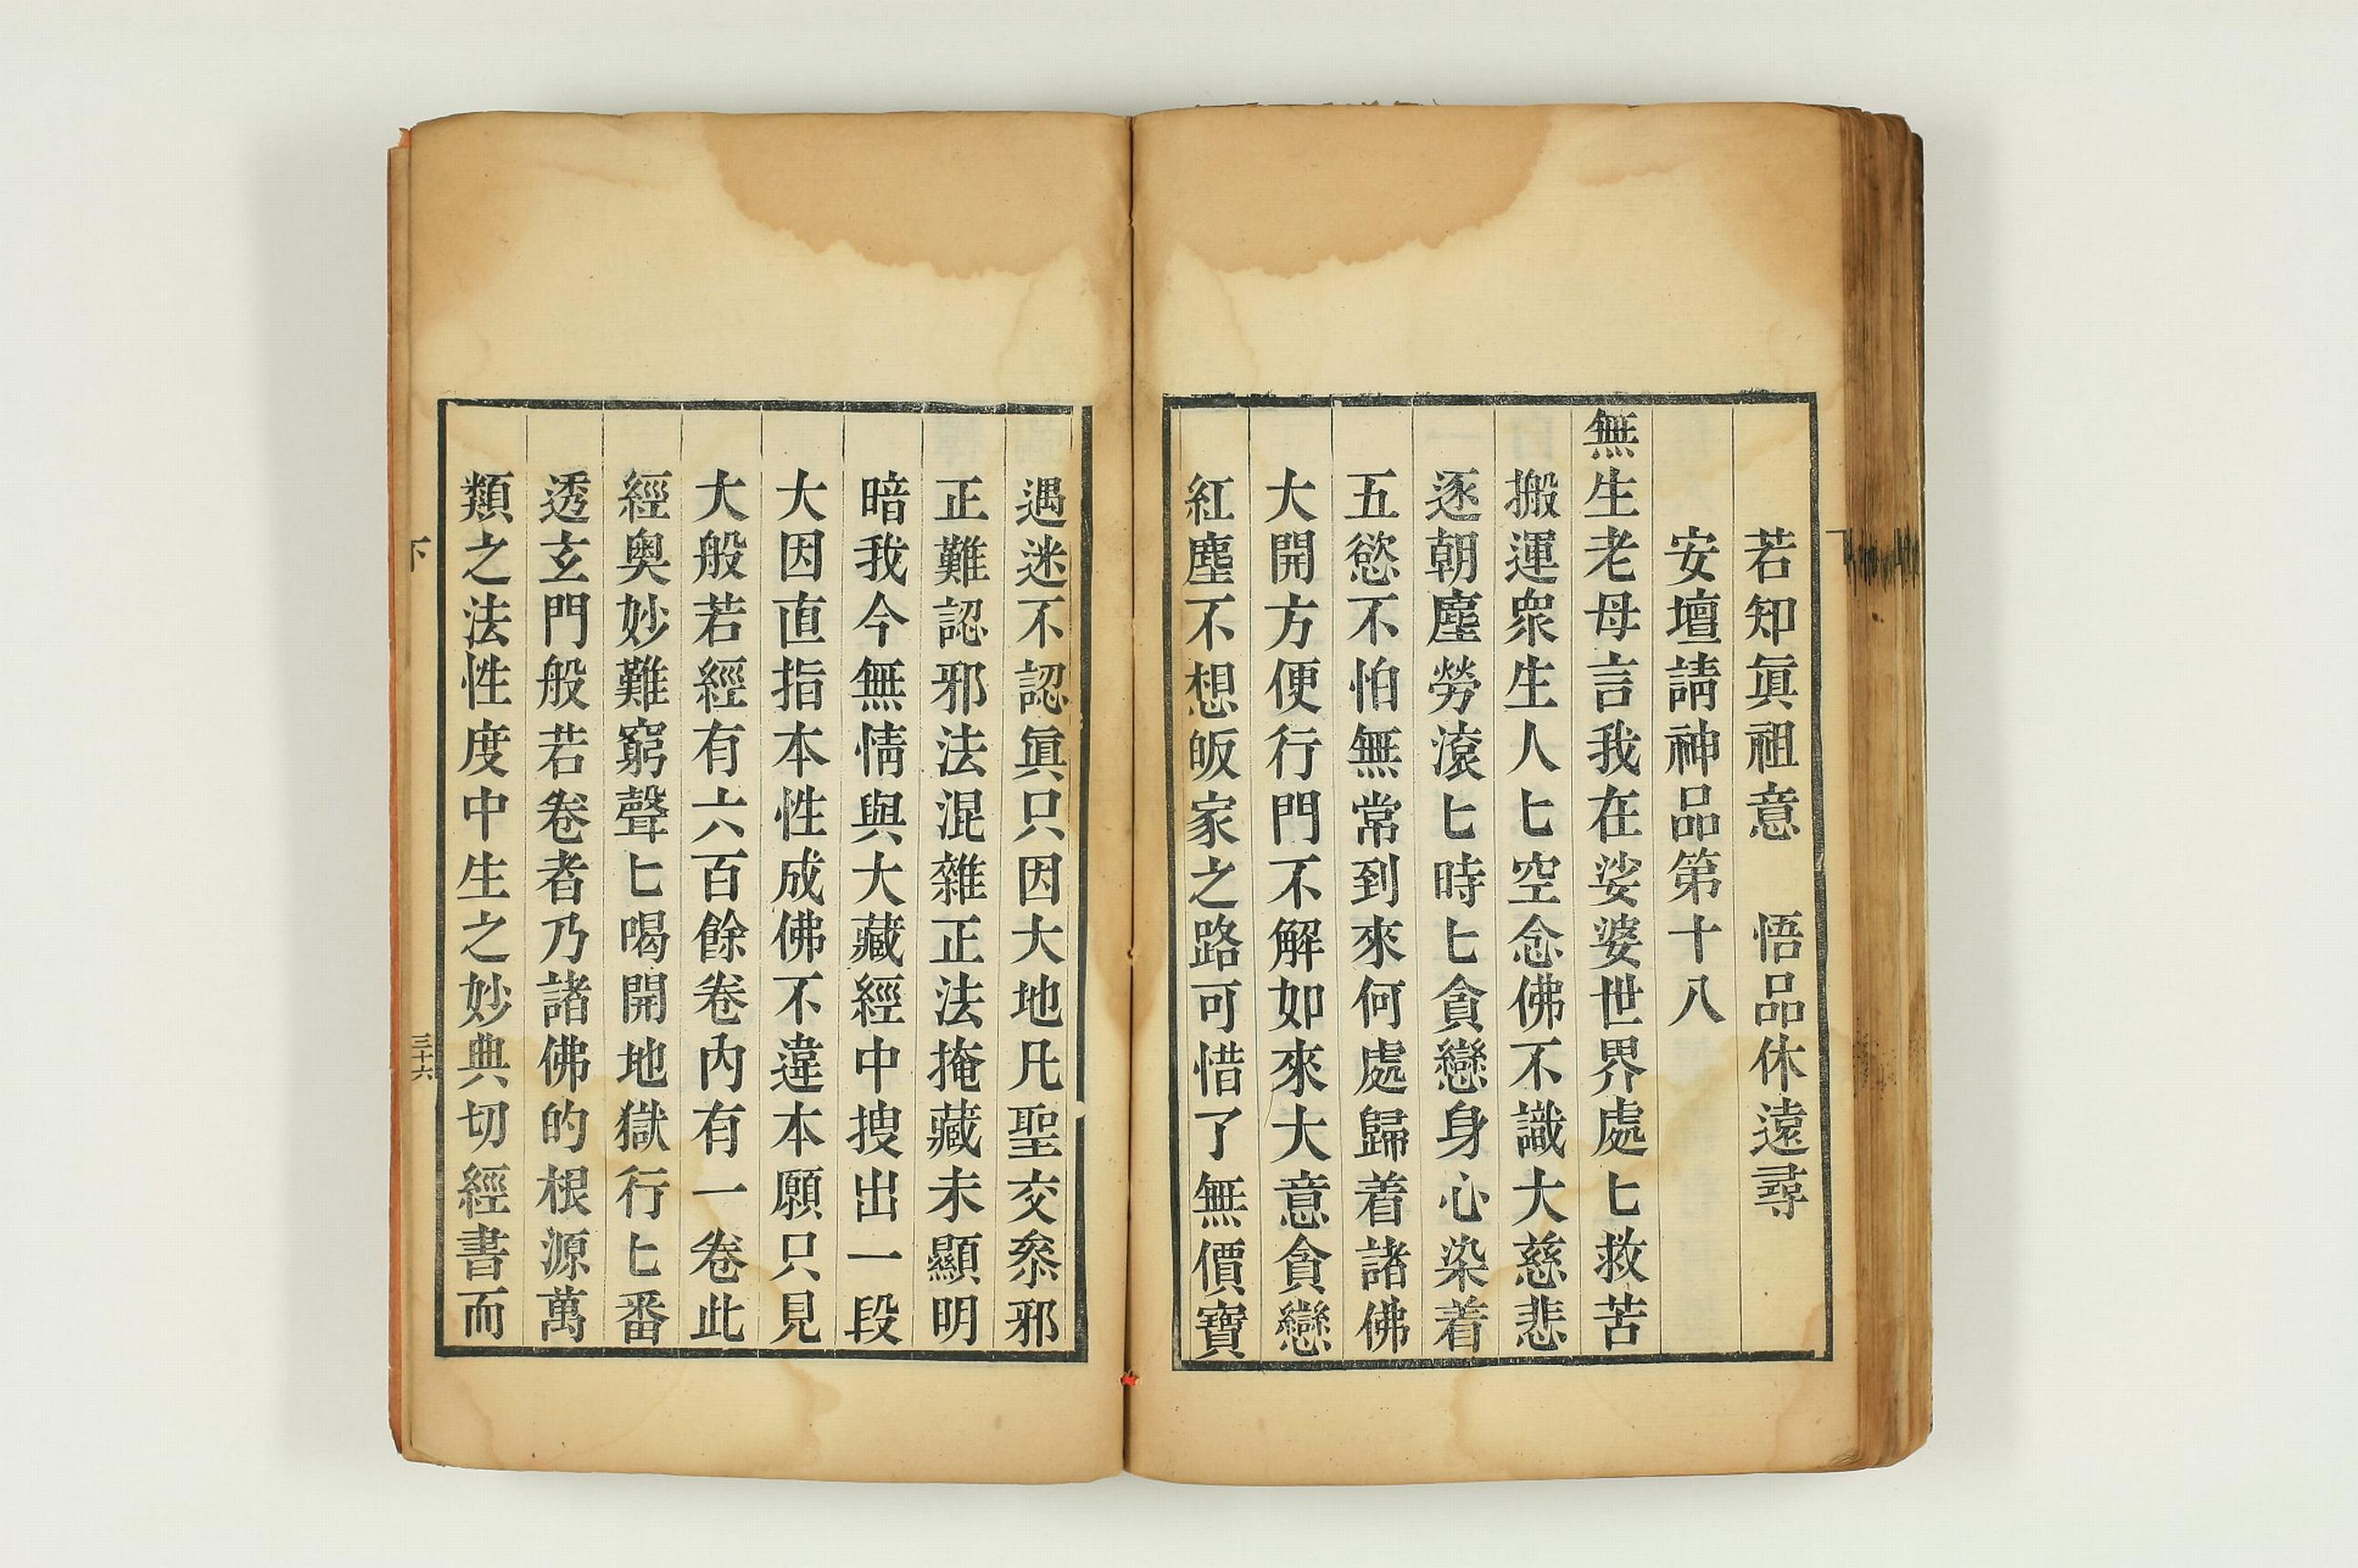 若知眞祖意　悟品休遠尋
安壇請神品第十八
無生老母言我在娑婆世界處匕救苦
搬運衆生人匕空念佛不識大慈悲
逐朝塵勞滾匕時匕貪戀身心染着
五慾不怕無常到來何處歸着諸佛
大開方便行門不解如來大意貪戀
紅塵不想皈家之路可惜了無價寶
遇迷不認眞只因大地凡聖交叅邪
正難認邪法混雜正法掩藏未顯明
暗我今無情與大藏經中搜出一段
大因直指本性成佛不違本願只見
大般若經有六百餘卷內有一卷此
經奥妙難窮聲匕喝開地獄行匕番
透玄門般若卷者乃諸佛的根源萬
類之法性度中生之妙典切經書而
下
三十六